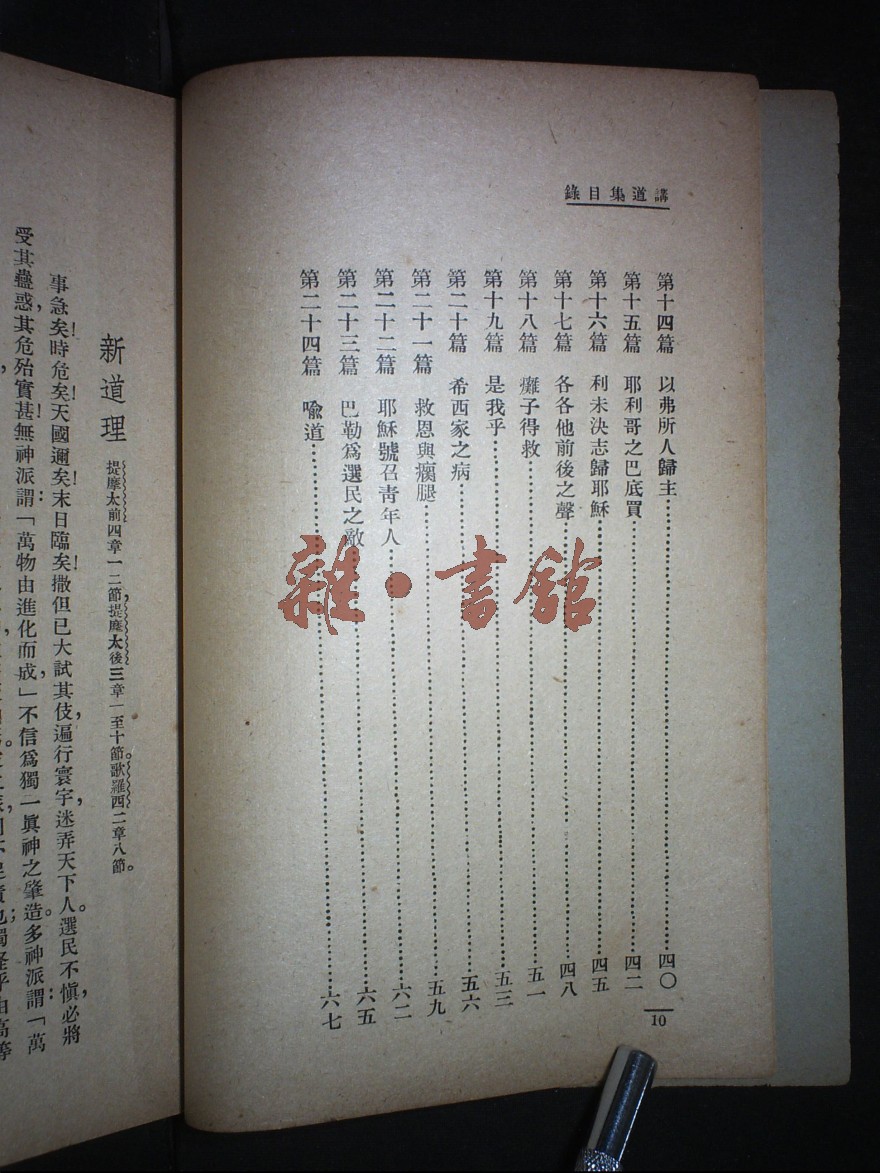 講道集目錄
第十四篇 以弗所人歸主 四〇
第十五篇 耶利哥之巴底買 四二
第十六篇 利未決志歸耶穌 四五
第十七篇 各各他前後之聲 四八
第十八篇 癱子得救 五一
第十九篇 是我乎 五三
第二十篇 希西家之病 五六
第二十一篇 救恩與瘸腿 五九
第二十二篇 耶穌號召靑年人 六二
第二十三篇 巴勒爲選民之敵 六五
第二十四篇 喩道 六七
10
雜·書館
新道理 提摩太前四章一二節，提摩太後三章一至十節。歌羅西二章八節。
事急矣！時危矣！天國邇矣！末日臨矣！撒但已大試其伎，遍行寰宇，迷弄天下人。選民不愼，必將
受其蠱惑，其危殆實甚！無神派謂：「萬物由進化而成」，不信爲獨一眞神之肇造。多神派謂：「萬